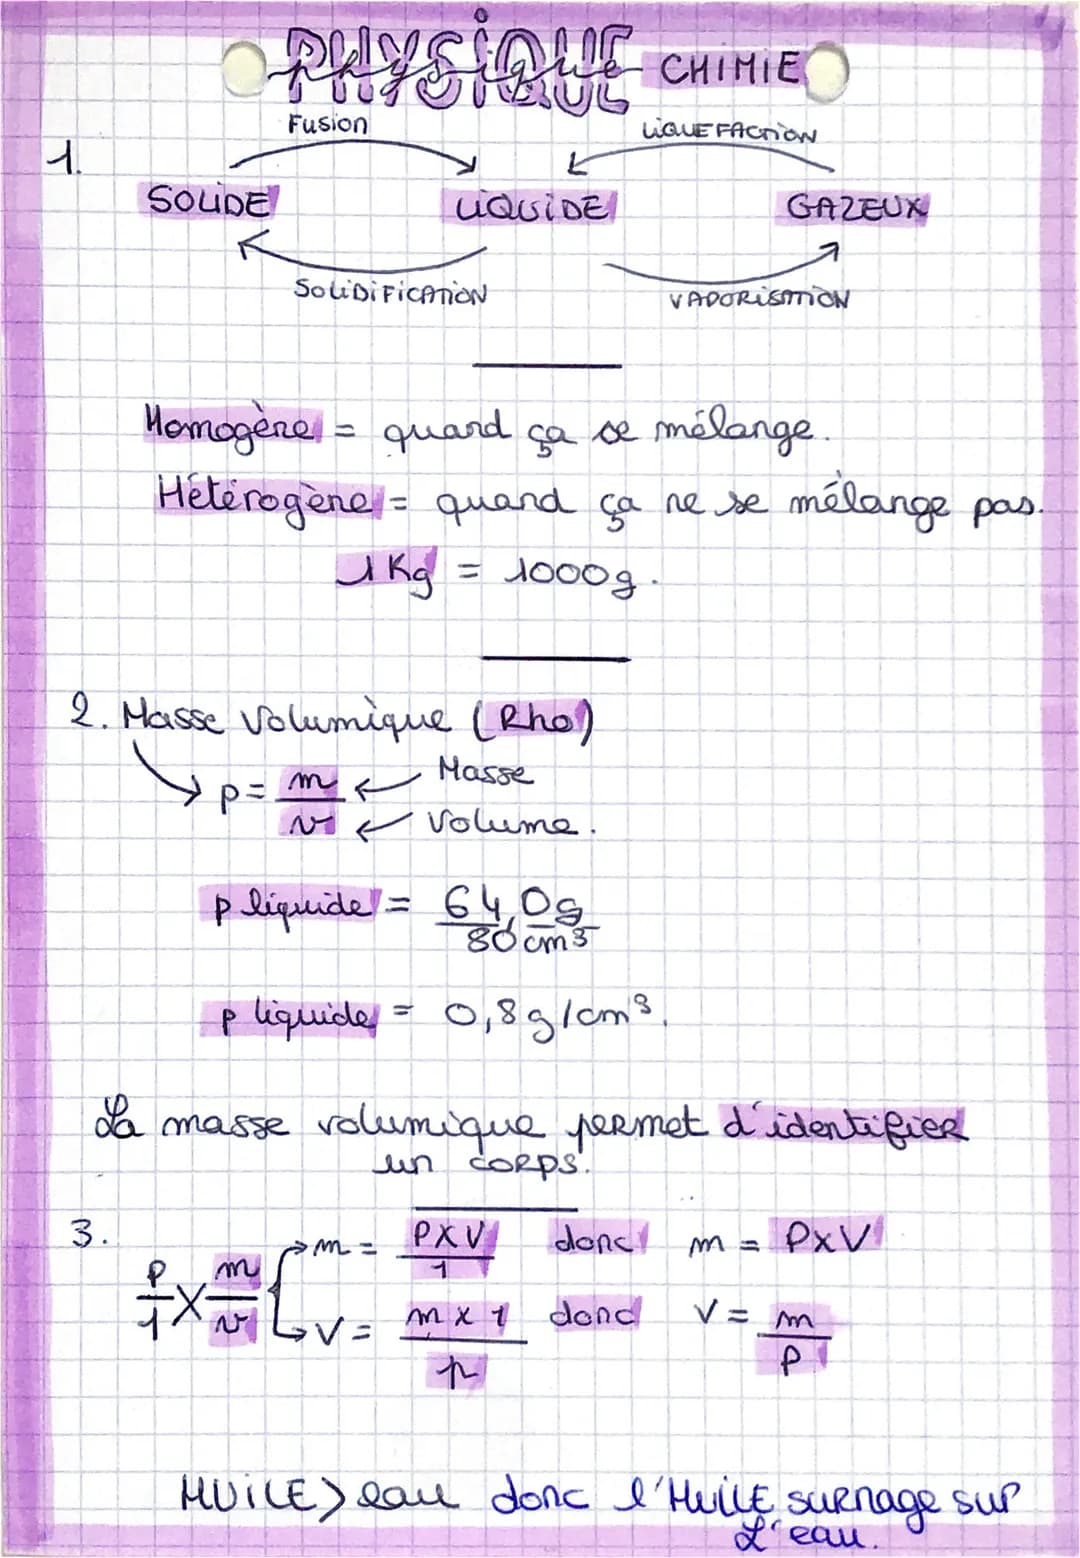 PHYSIQUE physique CHIMIE
1.
Fusion LIQUEFACTION
SOLIDE LIQUIDE GAZEUX
SOLIDIFICATION VAPORISATION
Homogène = quand ça se mélange.
Hétérogène = quand ça ne se mélange pas.
1 Kg = 1000g.
2. Masse Volumique (Rho)
p = m/v ← Masse
← Volume.
p liquide = 64,0g / 80 cm³
p liquide = 0,8 g/cm³.
La masse volumique permet d'identifier
un corps.
3.
p/1 X m/v → m = PXV/1 donc m = PxV
→ V = m x 1/p donc V = m/p
HUILE > eau donc l'HUILE surnage sur
L'eau.